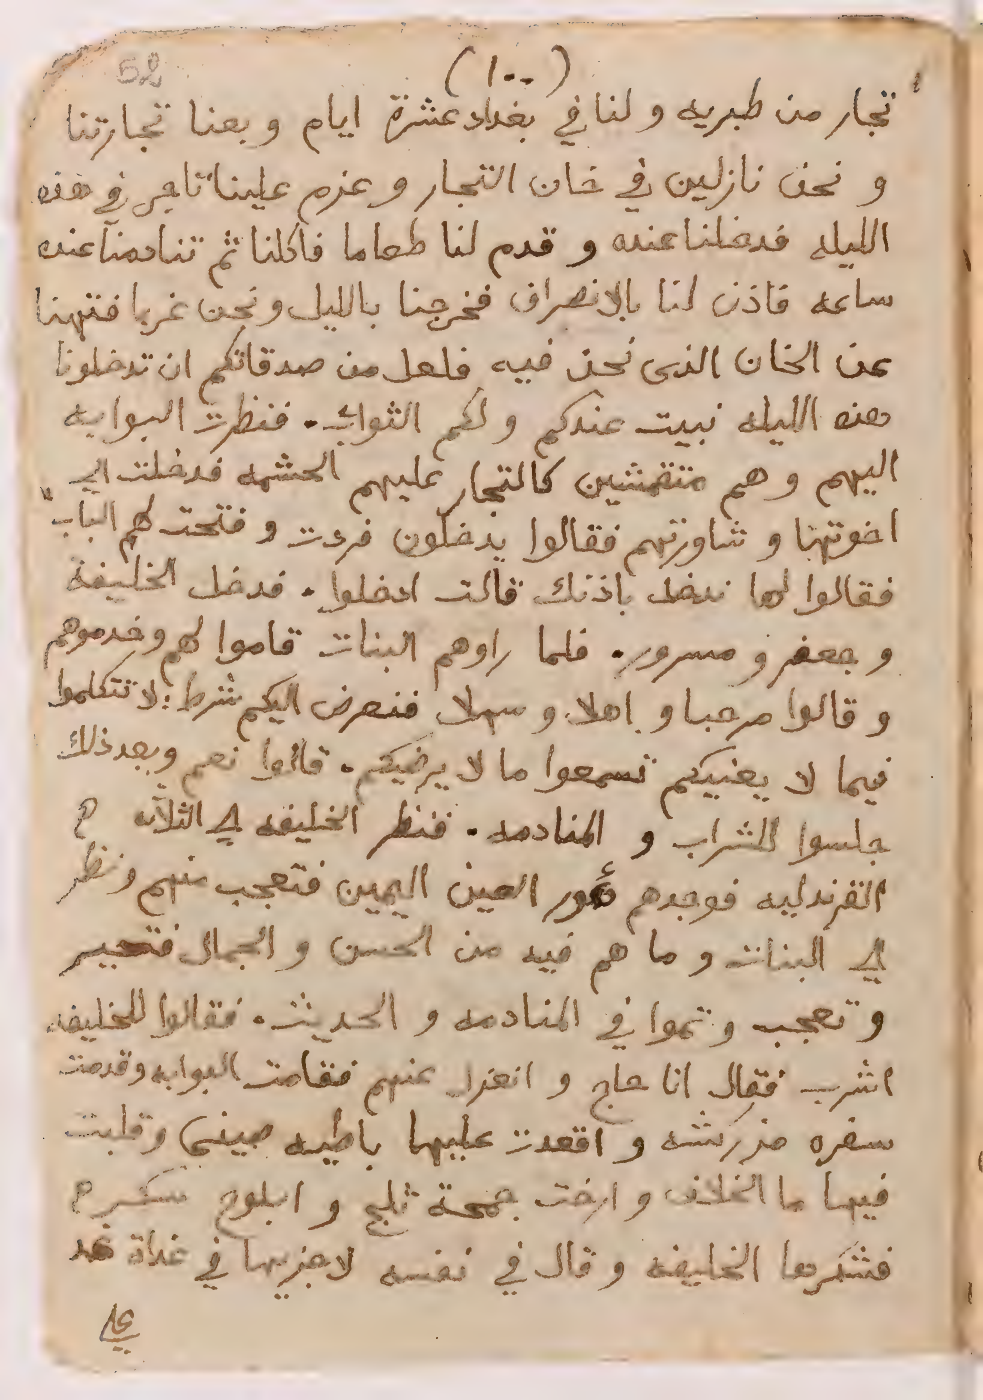 52
(١٠٠)
تجار من طبريه و لنا في بغداد عشرة ايام و بعنا تجارتنا
و نحن نازلين في خان التجار و عزم علينا تاجر في هذه
الليله فدخلنا عنده و قدم لنا طعاما فاكلنا ثم تنادمنا عنده
ساعه فاذن لنا بالانصراف فخرجنا بالليل ونحن غربا فتهنا
عن الخان الذى نحن فيه فلعل من صدقاتكم ان تدخلونا
هذه الليله نبيت عندكم و لكم الثواب. فنظرت البوابه
اليهم و هم متقمشين كالتجار عليهم الحشمه فدخلت الى
اخوتها و شاورتهم فقالوا يدخلون فردت و فتحت لهم الباب
فقالوا لها ندخل باذنك قالت ادخلوا. فدخل الخليفة
و جعفر و مسرور. فلما راوهم البنات قاموا لهم وخدموهم
و قالوا مرحبا و اهلا و سهلا فنعرض اليكم شرط: لا تتكلموا
فيما لا يعنيكم تسمعوا ما لا يرضيكم. قالوا نعم وبعد ذلك
جلسوا للشراب و المنادمه. فنظر الخليفه الى الثلاثه
القرندليه فوجدهم عُور العين اليمين فتعجب منهم ونظر
الى البنات و ما هم فيه من الحسن و الجمال فتحير
و تعجب و تموا في المنادمه و الحديث. فقالوا للخليفه
اشرب فقال انا حاج و انعزل عنهم فقامت البوابه وقدمت
سفره مزركشه و اقعدت عليها باطيه صينى وقلبت
فيها ما الخلاف و ارخت جمحة ثلج و ابلوج سكر
فشكرها الخليفه و قال في نفسه لاجزيها في غداة غد